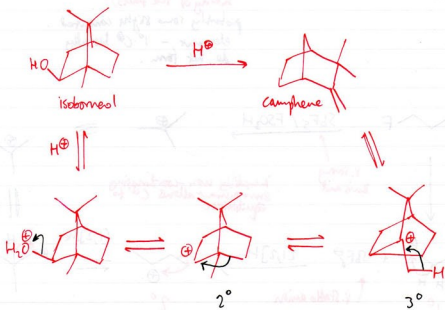 HO
H⊕
isoborneol
camphene
H⊕
H₂O⊕
⊕
⊕
H
2°
3°